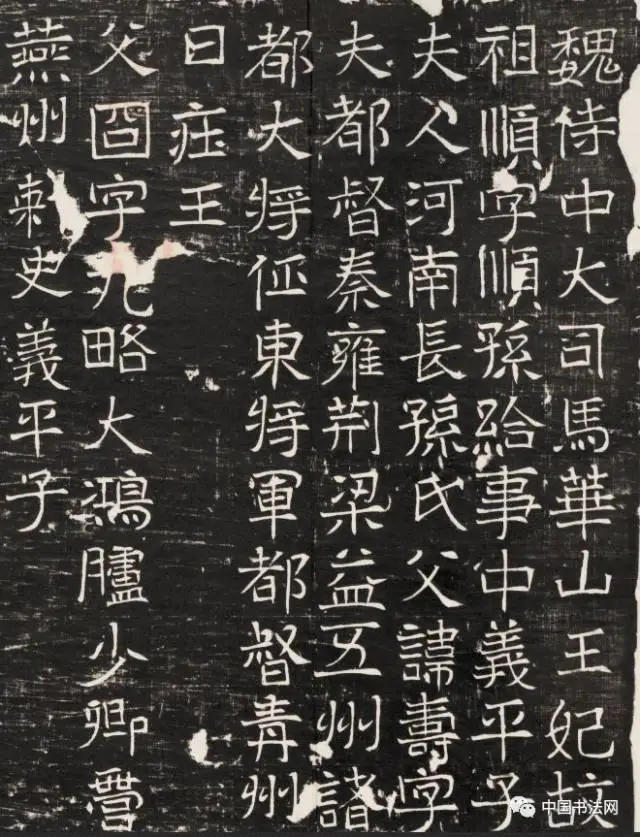 魏侍中大司馬華山王妃故
祖順字順孫給事中義平子
夫人河南長孫氏父諱壽字
夫都督秦雍荆梁益五州諸
都大將征東將軍都督青州
曰莊王
父冏字九略大鴻臚少卿營
燕州刺史義平子
中国书法网